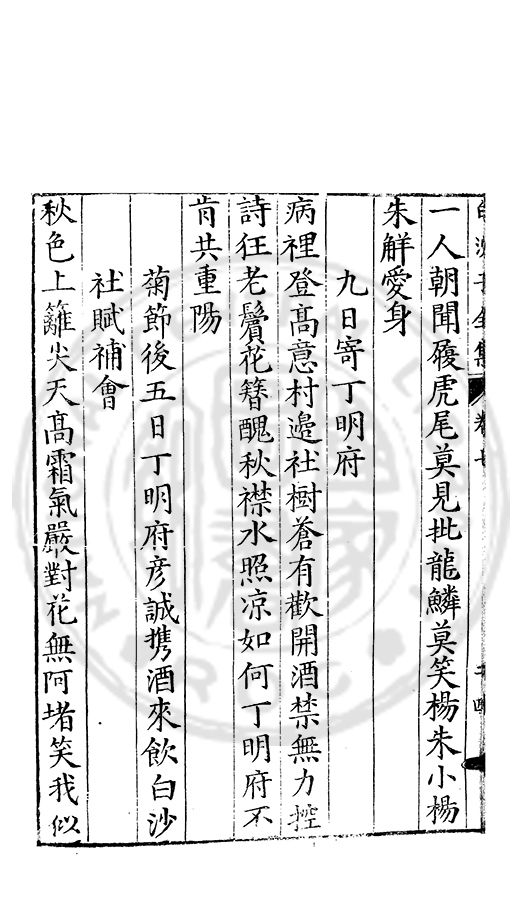 白沙子全集 卷七
一人朝聞履虎尾莫見批龍鱗莫笑楊朱小楊
朱解愛身
九日寄丁明府
病裡登高意村邊社樹蒼有歡開酒禁無力控
詩狂老鬢花簪醜秋襟水照凉如何丁明府不
肯共重陽
菊節後五日丁明府彦誠携酒來飲白沙
社賦補會
秋色上籬尖天高霜氣嚴對花無阿堵笑我似